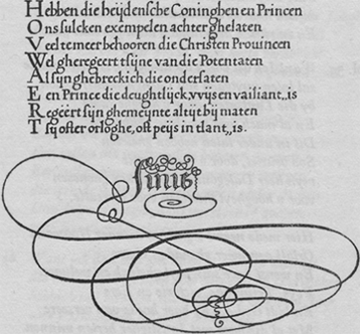 Hebben die heijdensche Coninghen en Princen
Ons sulcken exempelen achter ghelaten
Veel te meer behooren die Christen Prouincen
Wel gheregeert tsijne van die Potentaten
Al sijn ghebreckich die ondersaten
Een Prince die deughtlijck, vvijs en vailiant, is
Regeert sijn ghemeynte altijt bij maten
Tsij ofter orloghe, oft peijs in tlant, is.
finis